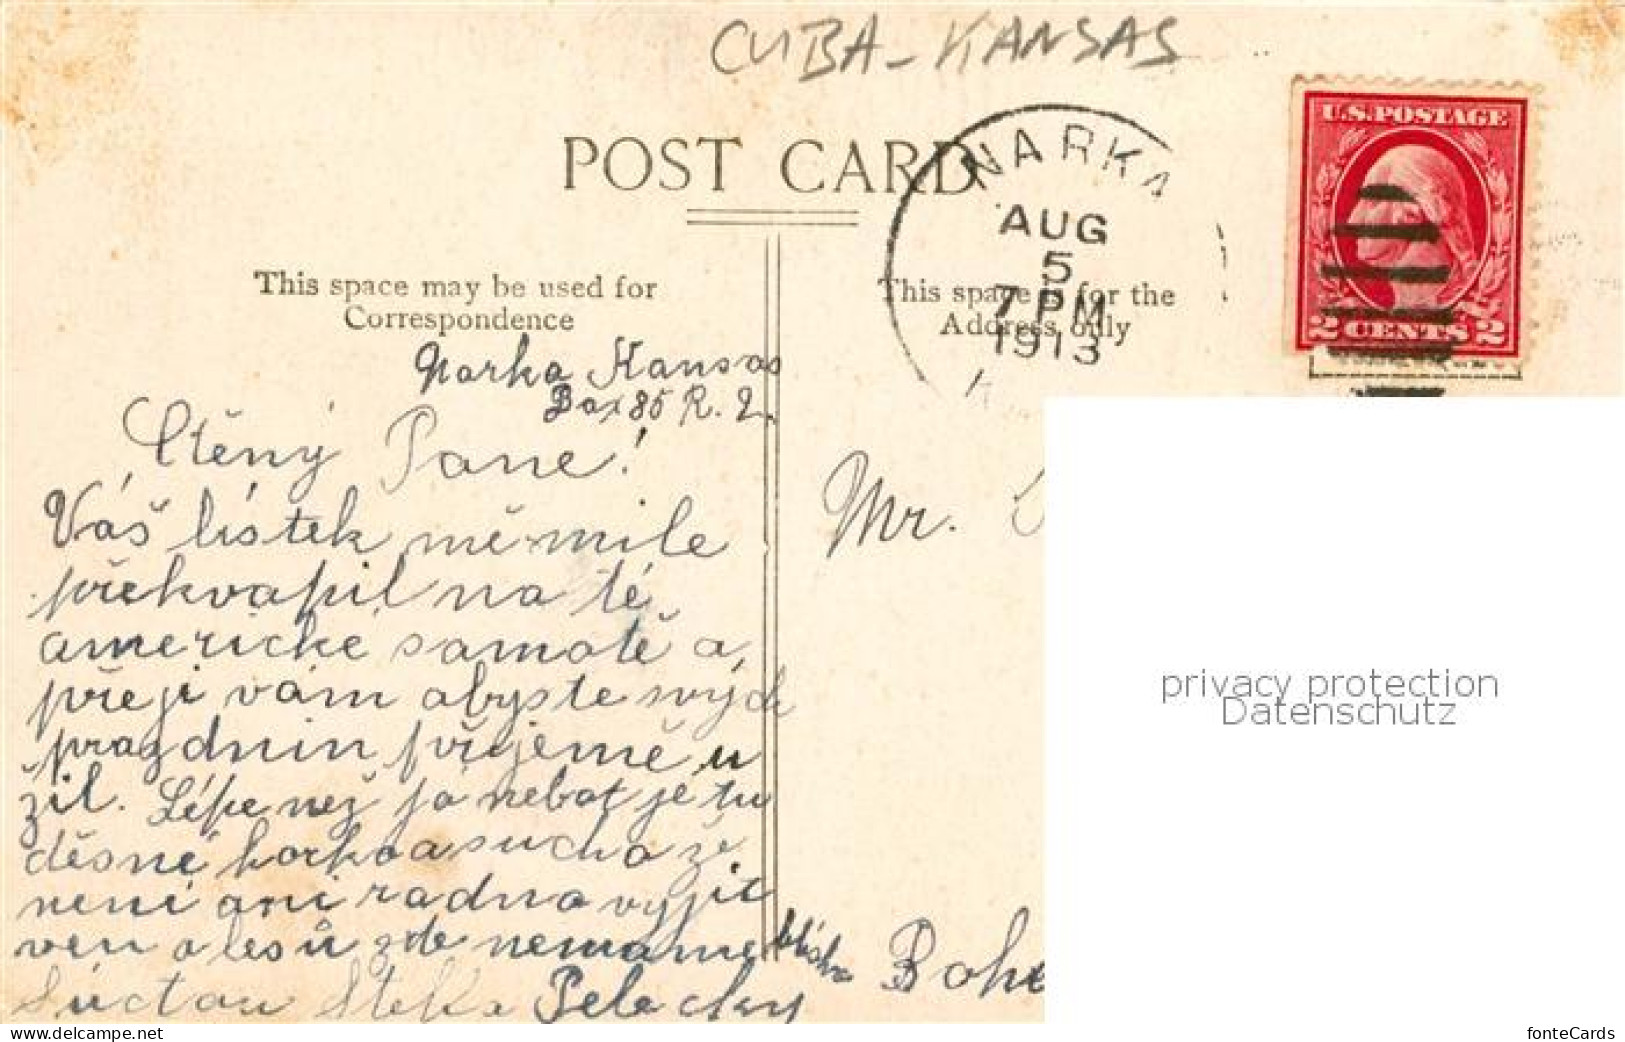 CUBA-KANSAS
U.S. POSTAGE
2 CENTS 2
POST CARD
NARKA
AUG
5
7 PM
1913
This space may be used for
Correspondence
This space is for the
Address only
Narka Kansas
Box 85 R. 2.
Ctěný Pane!
Váš lístek mě mile
překvapil na té
americké samotě a
přeji vám abyste svých
prazdnin příjemě u
žil. Lépe než já nebot je tu
děsné horko a sucho že
není ani radno vyjít
ven a lesů zde nemáme blisko
S úctou Pelecky
Mr.
Bohe
privacy protection
Datenschutz
www.delcampe.net
fonteCards